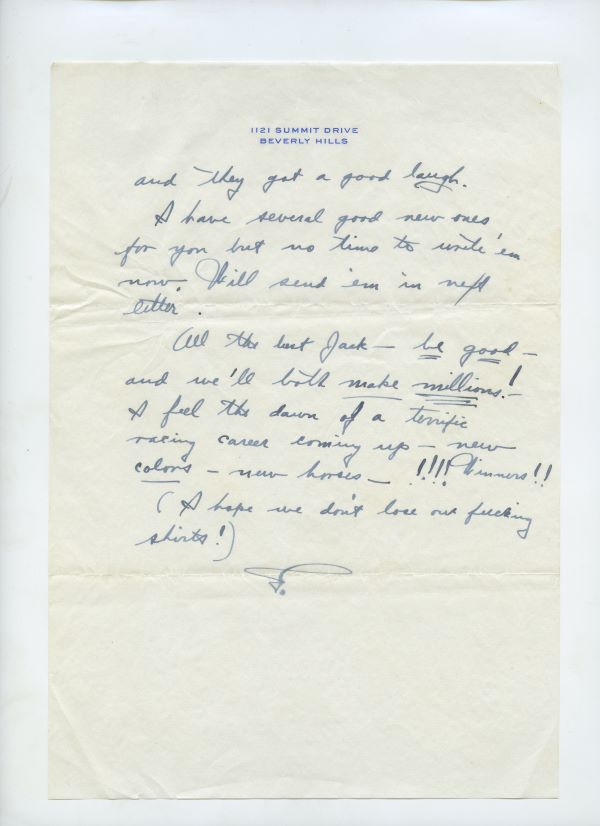 1121 SUMMIT DRIVE
BEVERLY HILLS
and they got a good laugh.
I have several good new ones
for you but no time to write 'em
now. Will send 'em in next
letter.
All the best Jack — be good —
and we'll both make millions! —
I feel the dawn of a terrific
racing career coming up — new
colors — new horses — !!!! Winners!!
(I hope we don't lose our fucking
shirts!)